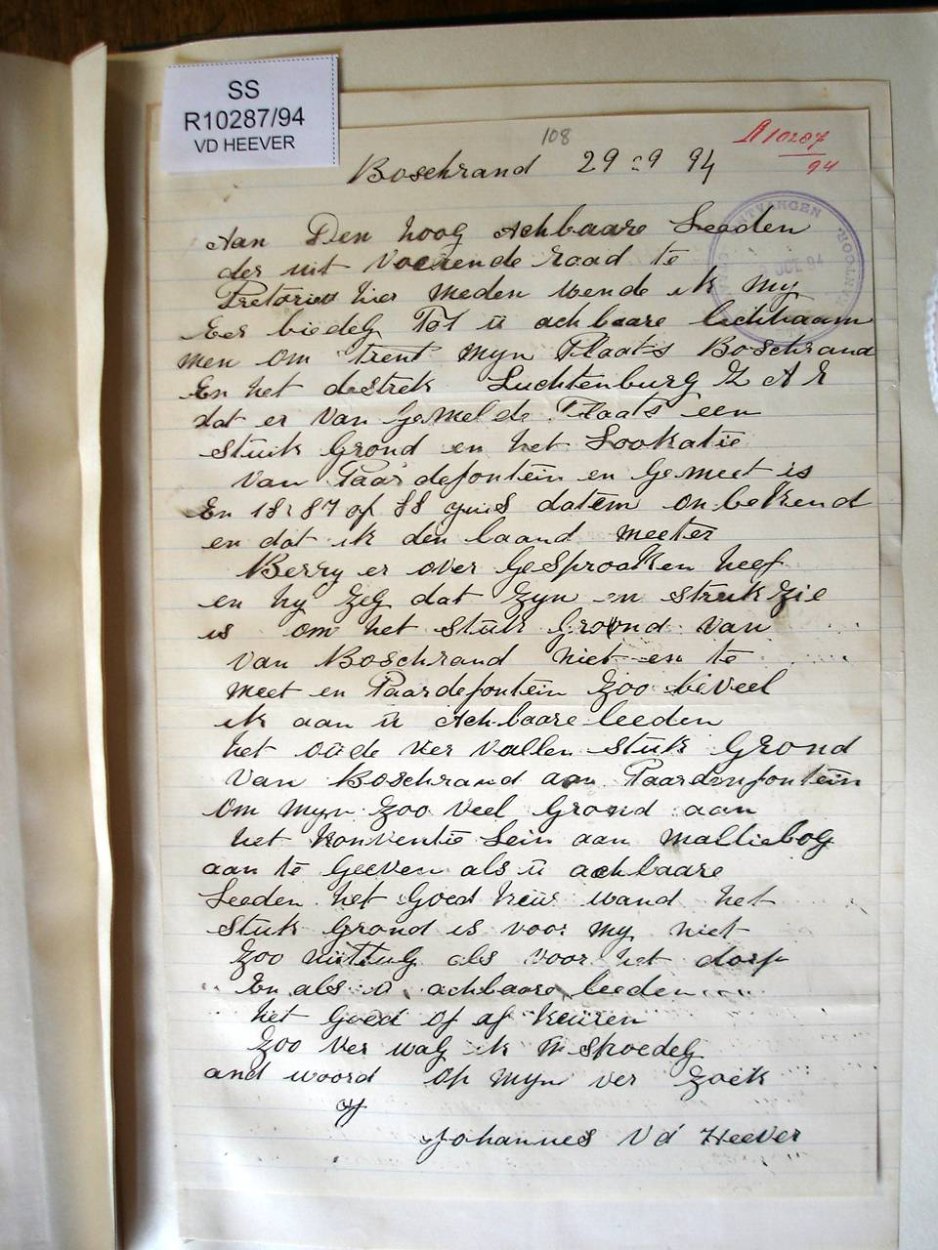 SS
R10287/94
VD HEEVER
108
R10287
94
Boschrand 29 : 9 94
ONTVANGEN
KANTOOR
Aan Den hoog Achbaare Leeden
der uit Voerende raad te
Pretoria hier meden wende ik my
Eer biedeg Tot u achbaare lichhaam
men om trent myn Plaats Boschrand
En het destrek Luchtenburg Z A R
dat er van gemelde Plaats een
stuik Grond en het Lookatie
van Paardefontein en Gemeet is
En 1887 of 88 datem onbekend
en dat ik den laand meeter
Berry er over Gesprooken heef
en hy zeg dat zyn en strukzie
is om het stuk Grond van
van Boschrand niet en te
meet en Paardefontein Zoo beveel
ik aan u Achbaare leeden
het oude ver vallen stuk Grond
van Boschrand aan Paardenfontein
om myn zoo veel Grond aan
het konventie Lein aan malliebog
aan te Geeven als u achbaare
Leeden het Goed keur wand het
stuk Grond is voor my niet
zoo nuttug als voor het dorp
En als u achbaare leeden
het Goed of af keuren
Zoo ver wag ik u spoedeg
and woord op myn ver zoek
Johannes Vd Heever